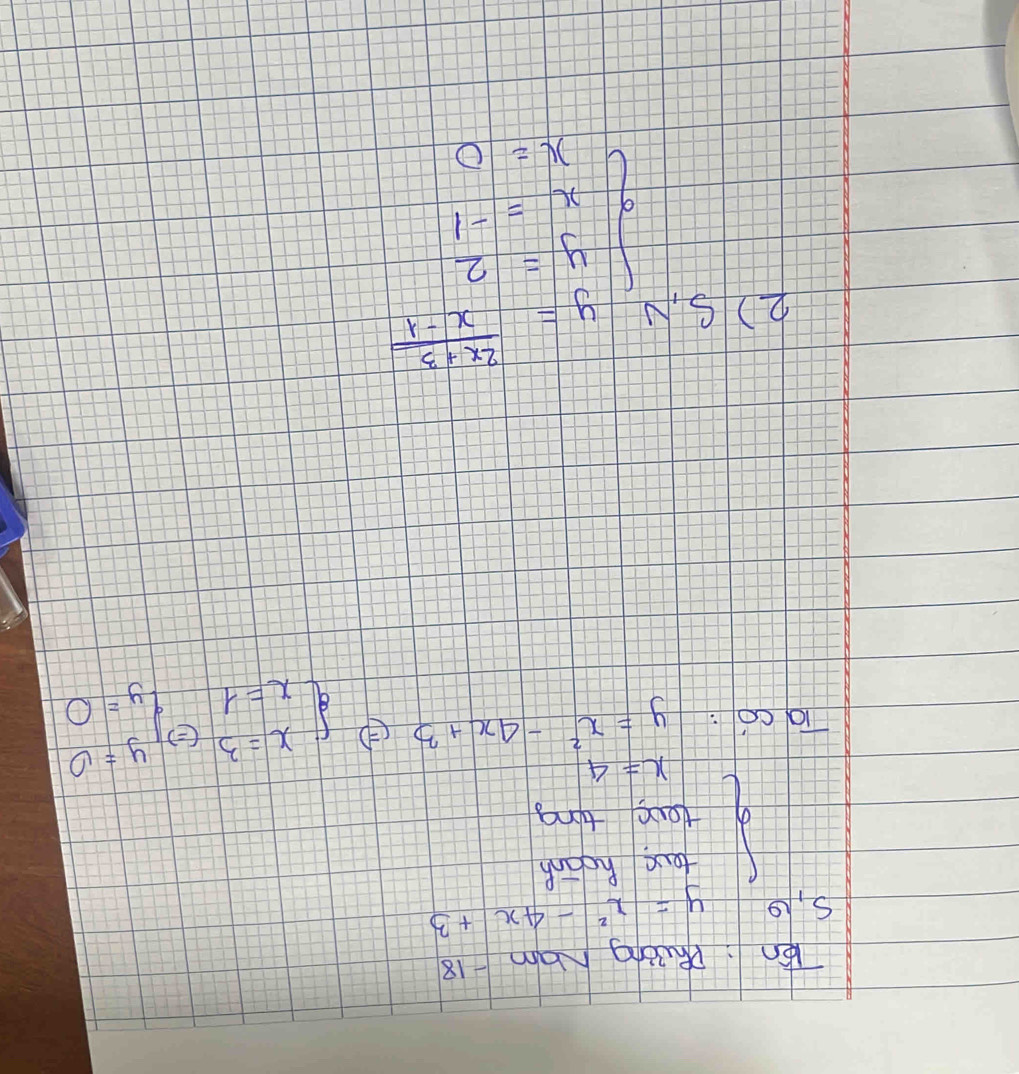 Tên : Phường Nam - 18
S, y = x² - 4x + 3
trục hoành
trục tung
x = 4
Ta có : y = x² - 4x + 3 (=) { x = 3 (=) { y = 0
x = 1 y = 0
2) S, V y = 2x + 3 / x - 1
y = 2
x = -1
x = 0